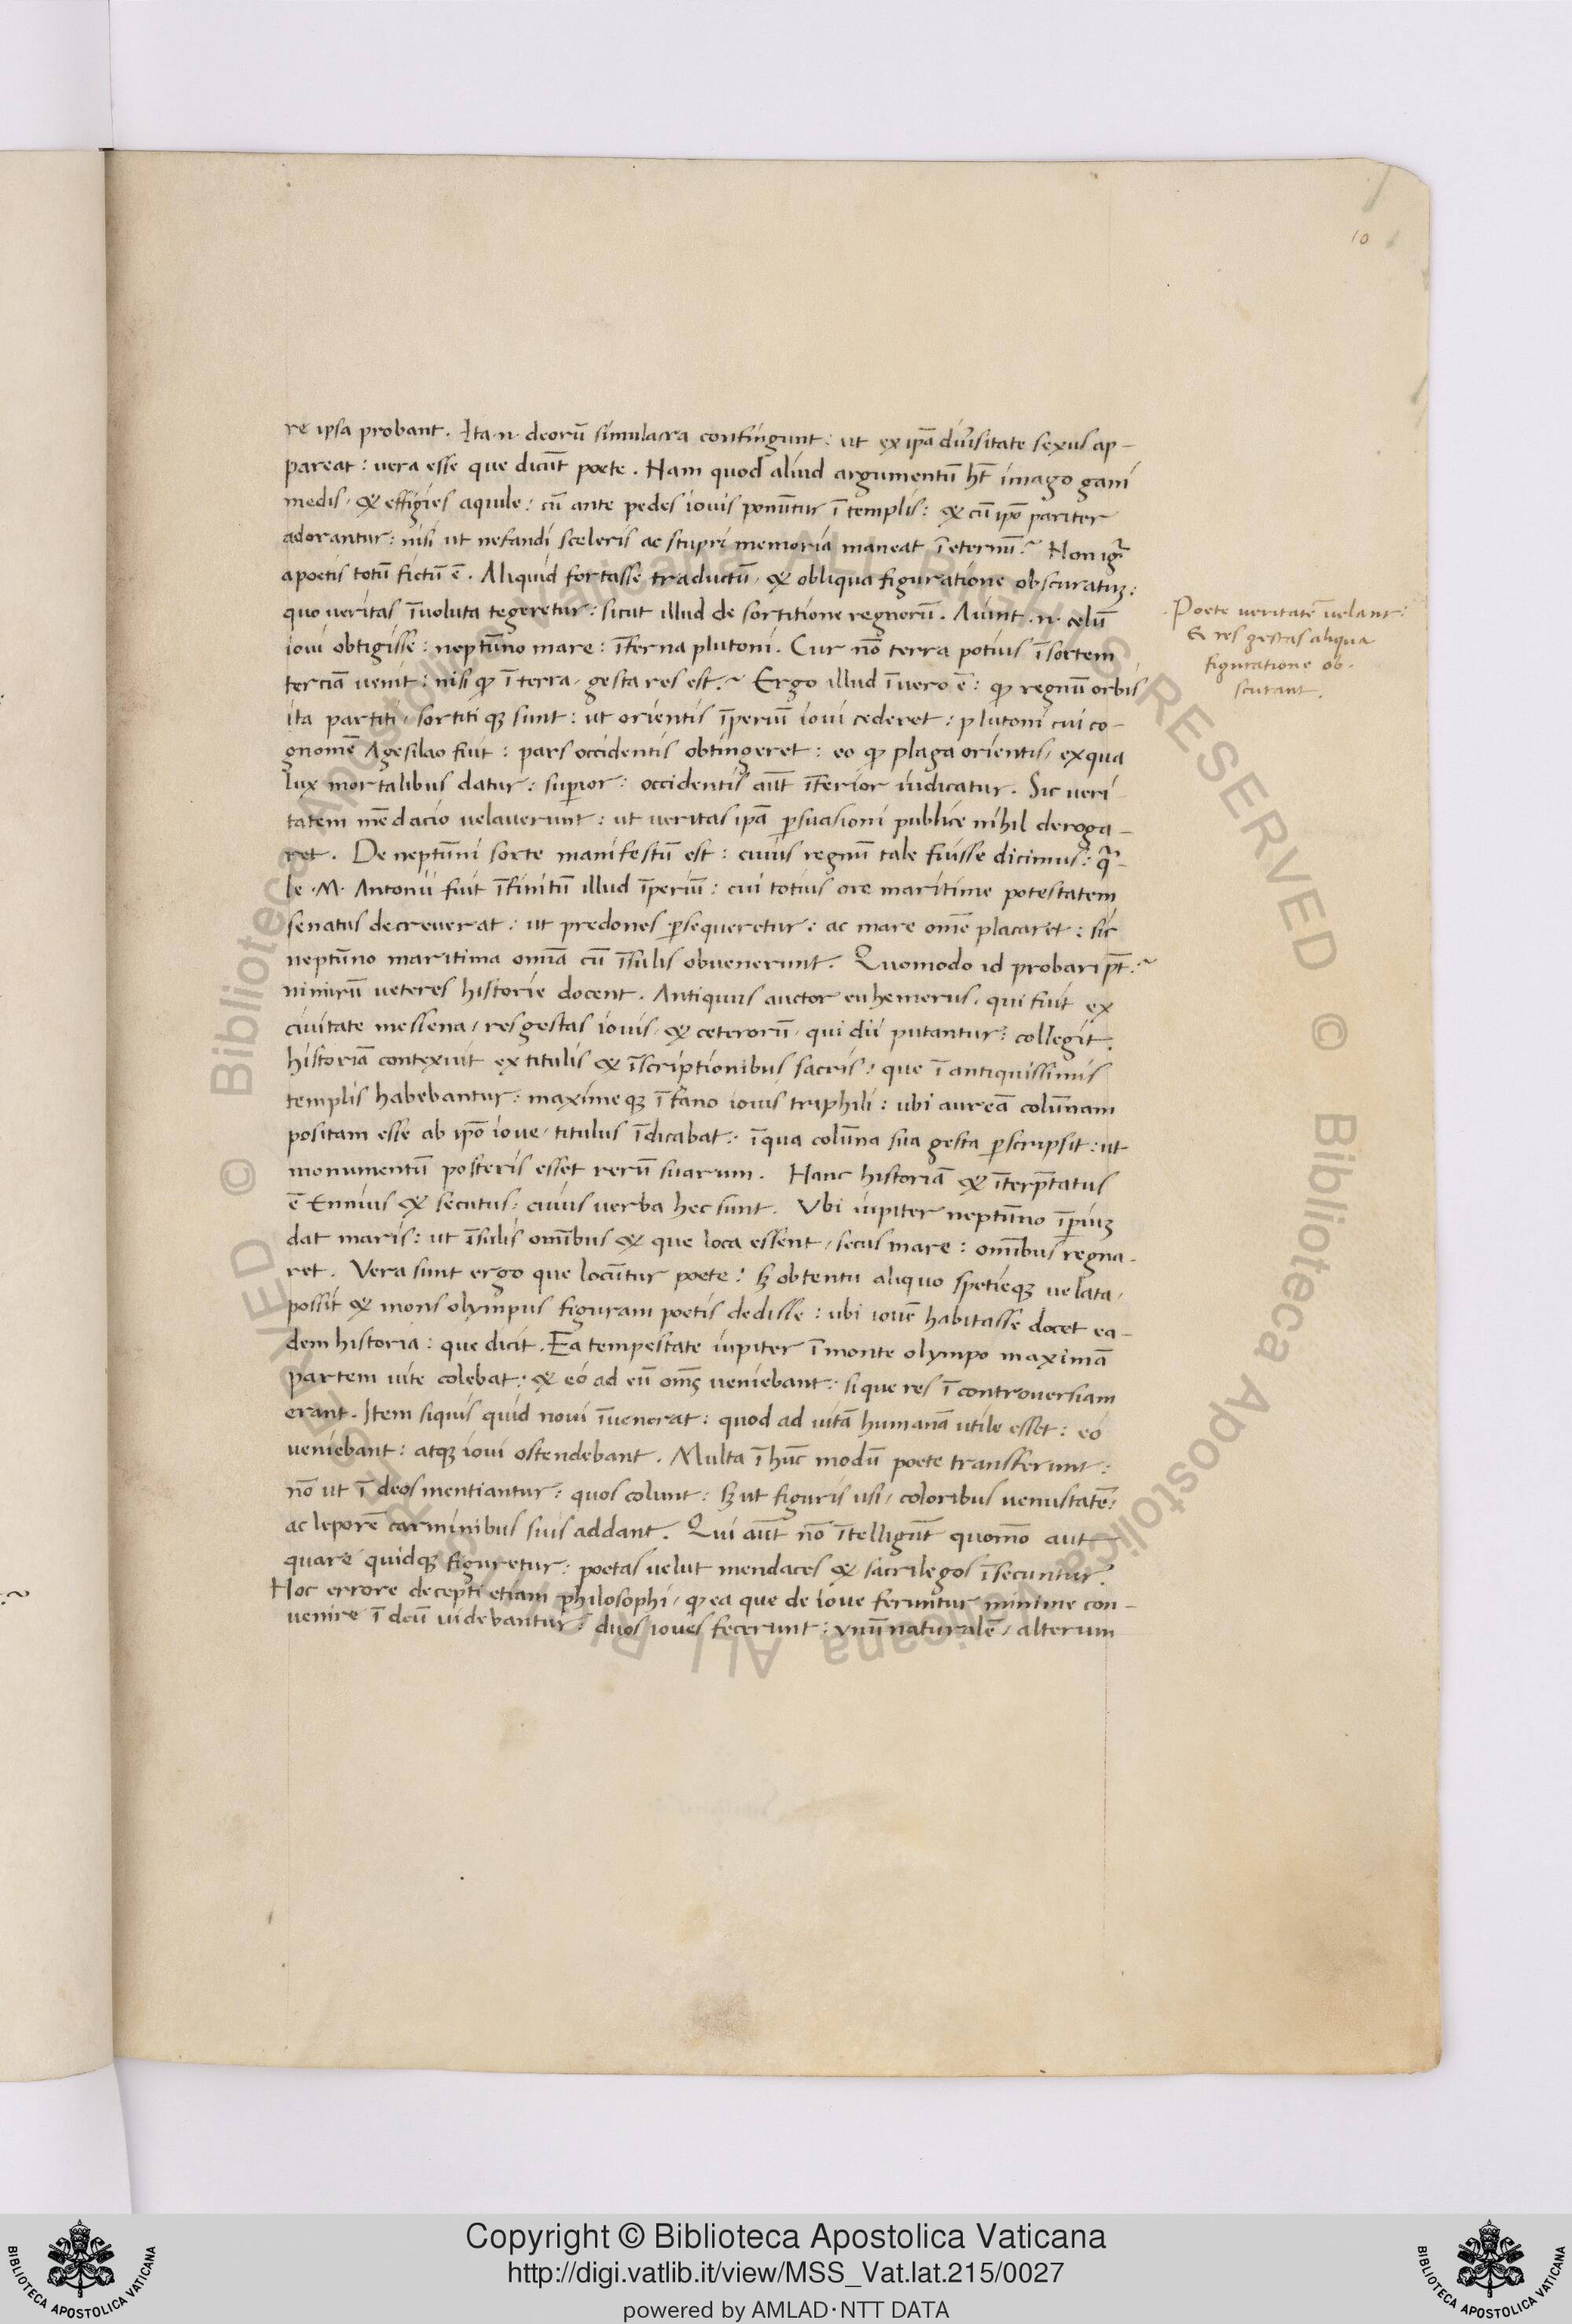 10
re ipsa probant. Ita .n. deorū simulacra confingunt: ut ex ipā diuīsitate sexus ap-
pareat: vera esse que dicūt poete. Nam quod aliud argumentū ht̄ imago gani
medis, & effigies aquile: cū ante pedes iovis ponūtur ī templis: & cū ipō pariter
adorantur: nisi ut nefandi sceleris ac stupri memoria maneat ī eternū? Non igr̄
a poetis totū fictū ē. Aliquid fortasse traductū, & obliqua figuratione obscuratuꝫ:
quo veritas īvoluta tegeretur: sicut illud de sortitione regnorū. Aiunt .n. celū
iovi obtigisse: neptūno mare: īferna plutoni. Cur nō terra potius ī sortem
terciā venit: nisi ꝙ ī terra, gesta res est? Ergo illud ī vero ē: ꝙ regnū orbis
ita partiti, sortitiqꝫ sunt: ut orientis īperiū iovi cederet: plutoni cui co-
gnomē Agesilao fuit: pars occidentis obtingeret: eo ꝙ plaga orientis, ex qua
lux mortalibus datur: suꝑior: occidentis aūt īferior iudicatur. Sic veri
tatem mēdacio velaverunt: ut veritas ipā ꝑsuasioni publice nihil deroga-
ret. De neptūni sorte manifestū est: cuius regnū tale fuisse dicimus: q̄-
le .M. Antonii fuit īfinitū illud īperiū: cui totius ore maritime potestatem
senatus decreverat: ut predones ꝑsequeretur: ac mare omē placaret: sic
neptūno maritima omīa cū īsulis obvenerunt. Quomodo id probari pt̄?
nimirū veteres historie docent. Antiquus auctor euhemerus, qui fuit ex
civitate messena, res gestas iovis, & ceterorū, qui dii putantur: collegit.
historiā contexuit ex titulis & īscriptionibus sacris: que ī antiquissimis
templis habebantur: maximeqꝫ ī fano iovis triphili: ubi aureā colūnam
positam esse ab ipō iove, titulus īdicabat: ī qua colūna sua gesta ꝑscripsit: ut
monumentū posteris esset rerū suarum. Hanc historiā & īterp̄tatus
ē Ennius & secutus: cuius verba hec sunt. Ubi iupiter neptūno īꝑiuꝫ
dat maris: ut īsulis omībus & que loca essent, secus mare: omībus regna-
ret. Vera sunt ergo que locūtur poete: sꝫ obtentu aliquo spetieqꝫ velata,
possit & mons olympus figuram poetis dedisse: ubi iovē habitasse docet ea-
dem historia: que dicit. Ea tempestate iupiter ī monte olympo maximā
partem vite colebat: & eó ad eū om̄s veniebant: si que res ī controversiam
erant. Item siquis quid novi īvenerat: quod ad vitā humanā utile esset: eó
veniebant: atqꝫ iovi ostendebant. Multa ī hūc modū poete transferunt:
nō ut ī deos mentiantur: quos colunt: sꝫ ut figuris usi, coloribus venustatē:
ac leporē carminibus suis addant. Qui aūt nō ītelligūt quomō aut
quare quidqꝫ figuretur: poetas velut mendaces & sacrilegos īsecuntur.
Hoc errore decepti etiam philosophi, ꝙ ea que de iove feruntur minime con-
venire ī deū videbantur: duos ioves fecerunt: unū naturalē, alterum
Poete veritatē velant:
& res gestas aliqua
figuratione ob-
scurant.
Copyright © Biblioteca Apostolica Vaticana
http://digi.vatlib.it/view/MSS_Vat.lat.215/0027
powered by AMLAD·NTT DATA
BIBLIOTECA APOSTOLICA VATICANA
BIBLIOTECA APOSTOLICA VATICANA
© Biblioteca Apostolica Vaticana ALL RIGHTS RESERVED © Biblioteca Apostolica Vaticana ALL RIGHTS RESERVED